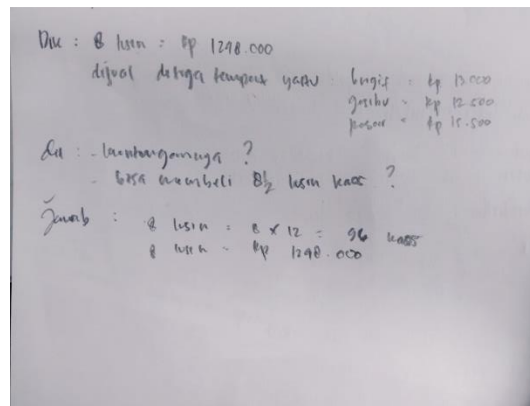 Dik : 8 lusin = Rp 1298.000
dijual ditiga tempat yaitu : bugis = Rp 13.000
gasibu = Rp 12.500
pasar = Rp 15.500
dit : - keuntungannya ?
- bisa membeli 8½ lusin kaos ?
Jawab : 8 lusin = 8 x 12 = 96 kaos
8 lusin = Rp 1298.000